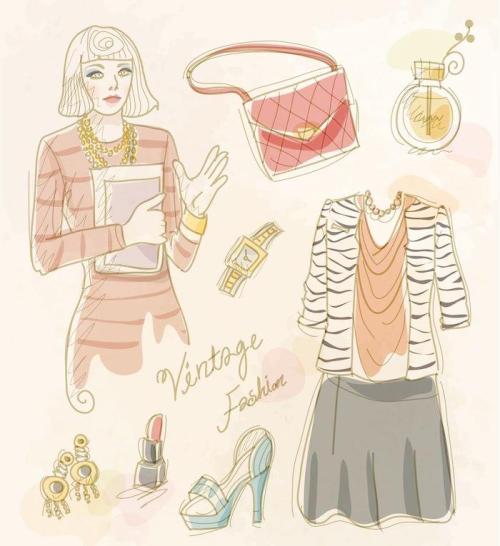 Vintage
Fashion